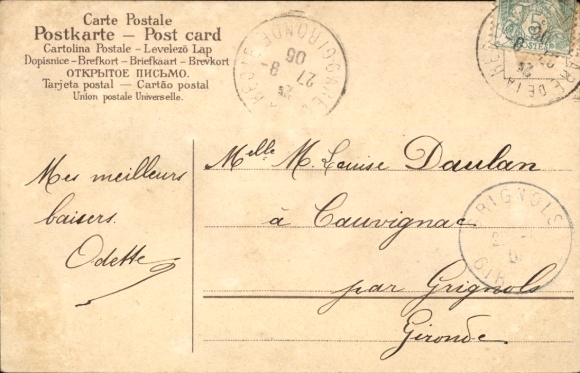 Carte Postale
Postkarte — Post card
Cartolina Postale - Levelező Lap
Dopisnice - Brefkort - Briefkaart - Brevkort
ОТКРЫТОЕ ПИСЬМО.
Tarjeta postal — Cartão postal
Union postale Universelle.
GIRONDE
27
8
06
5
POSTES
GARE DE LA
Mes meilleurs
baisers.
Odette
Melle M. Louise Daulan
à Cauvignac
par Grignols
Gironde
GRIGNOLS
GIR